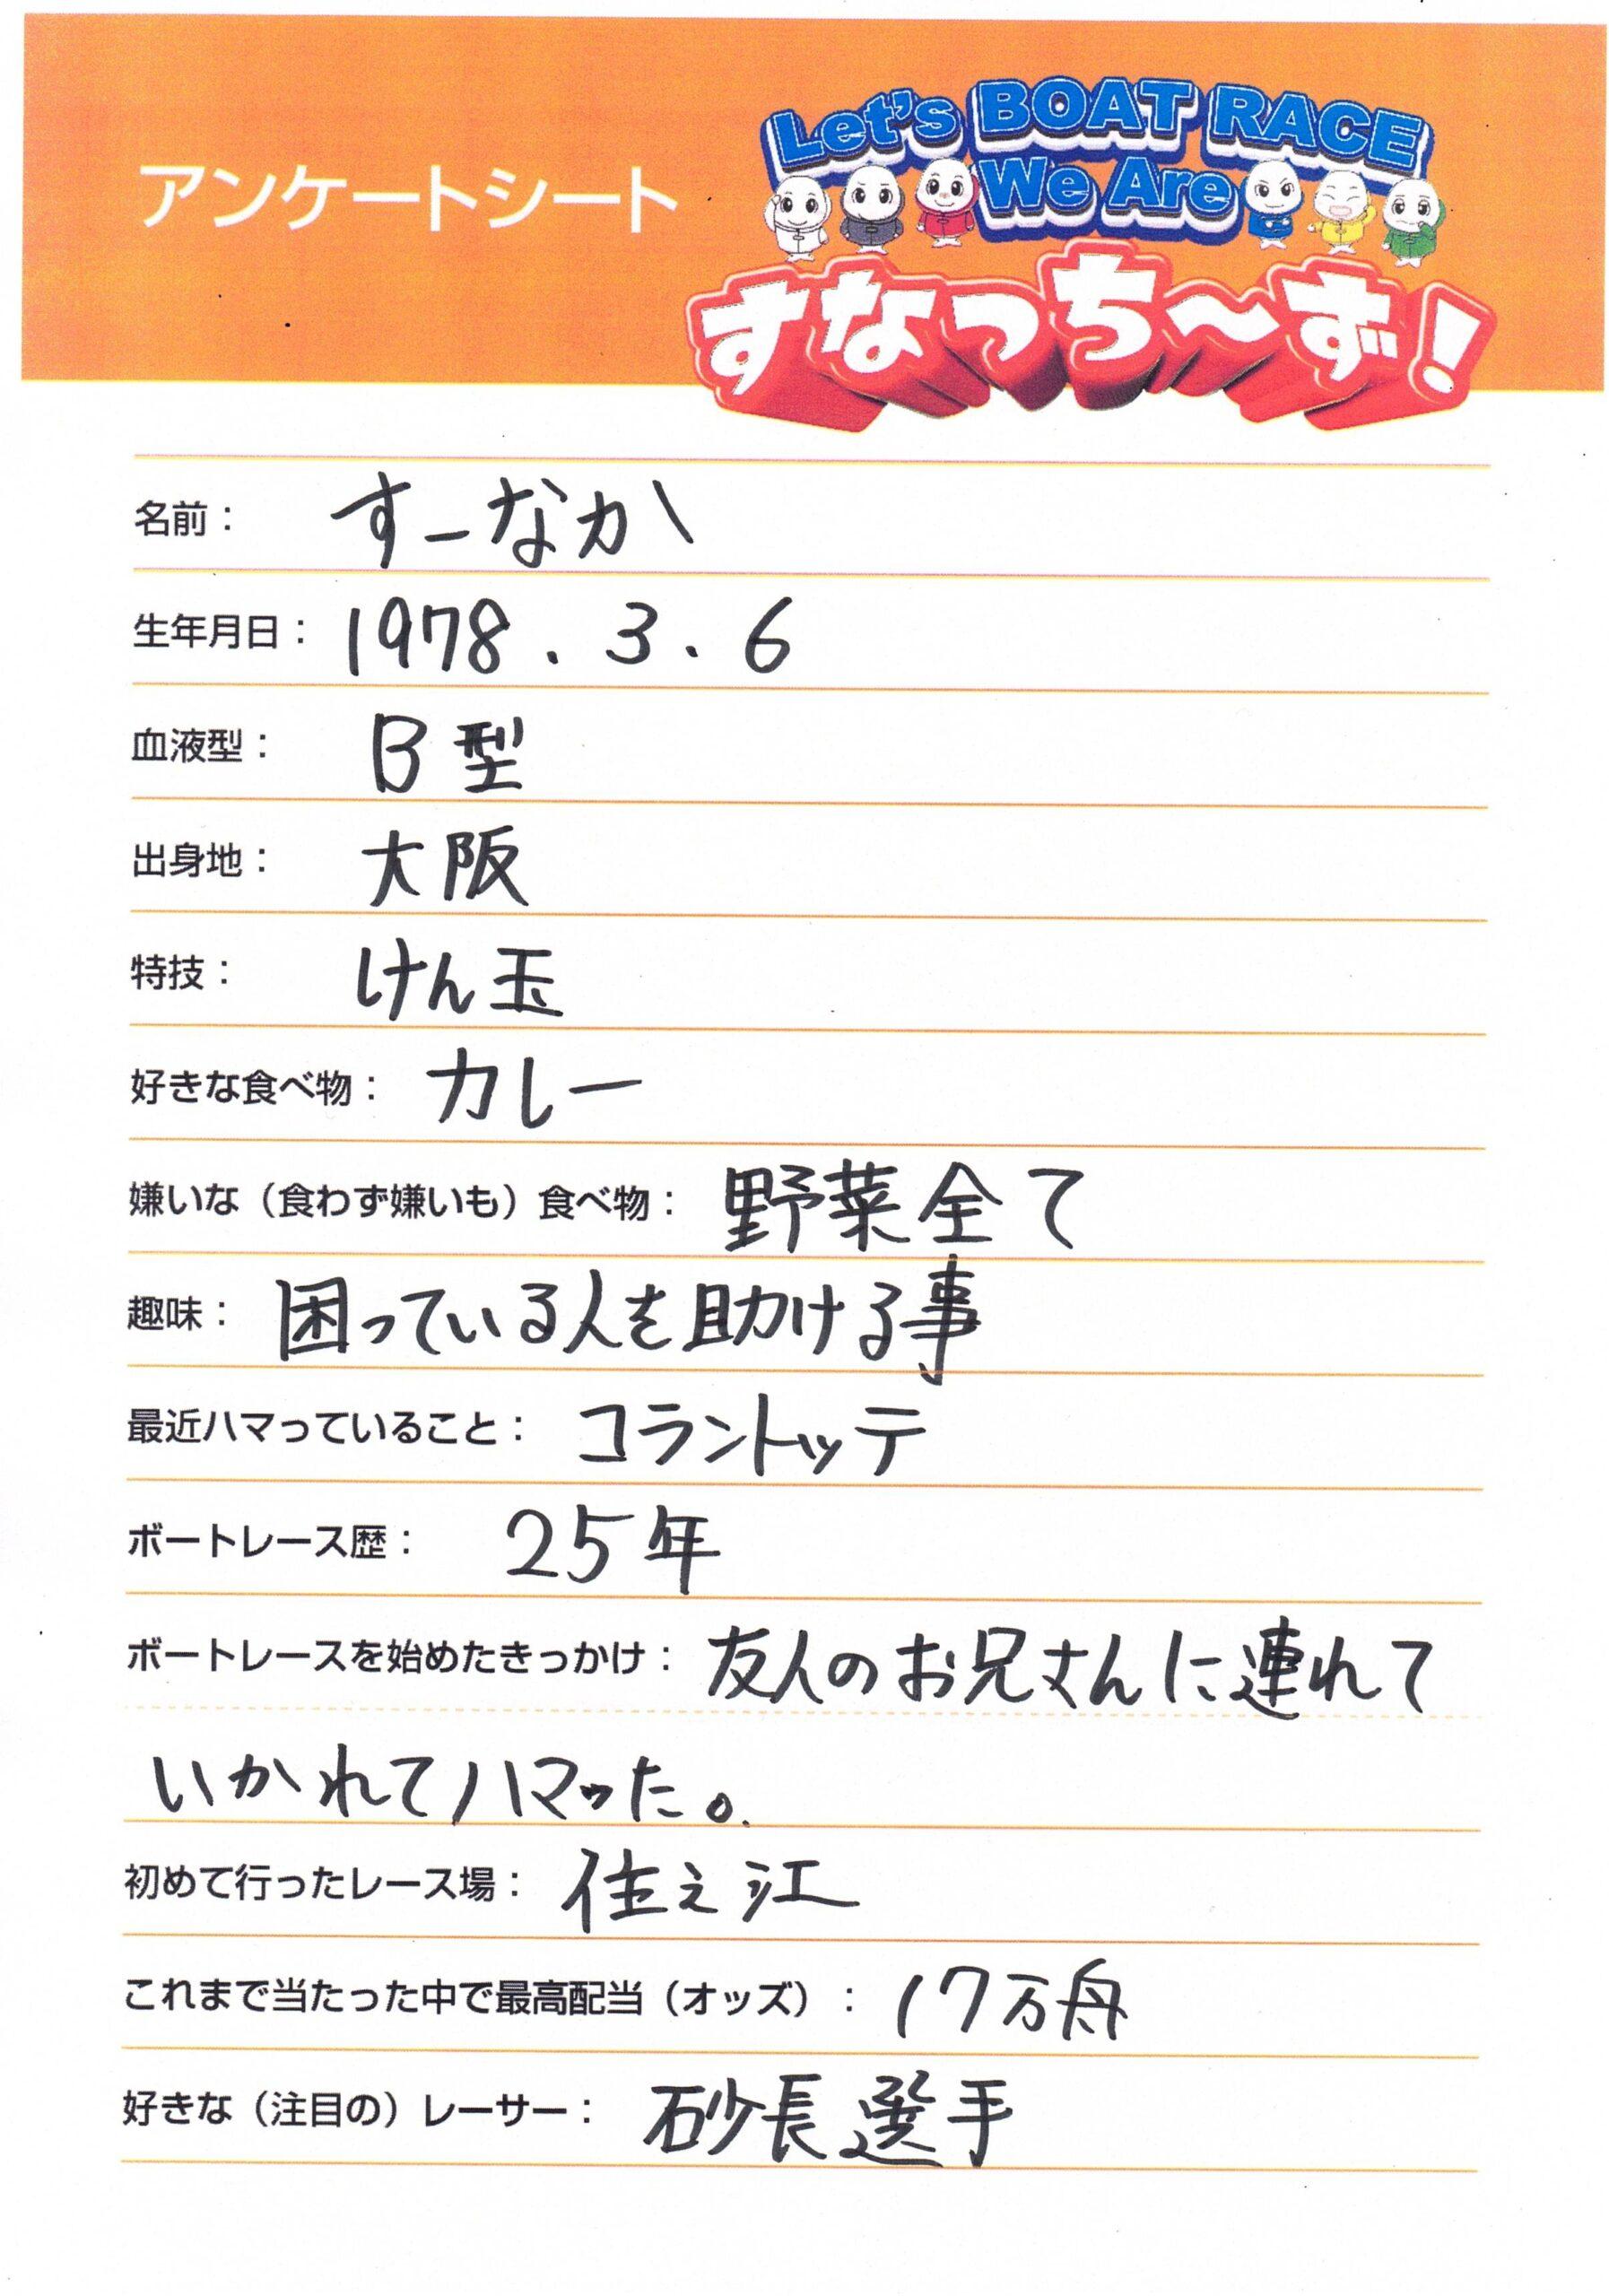 アンケートシート
Let's BOAT RACE
We Are
すなっち〜ず!
名前: すーなか
生年月日: 1978.3.6
血液型: B型
出身地: 大阪
特技: けん玉
好きな食べ物: カレー
嫌いな(食わず嫌いも)食べ物: 野菜全て
趣味: 困っている人を助ける事
最近ハマっていること: コラントッテ
ボートレース歴: 25年
ボートレースを始めたきっかけ: 友人のお兄さんに連れて
いかれてハマッた。
初めて行ったレース場: 住之江
これまで当たった中で最高配当(オッズ): 17万舟
好きな(注目の)レーサー: 砂長選手